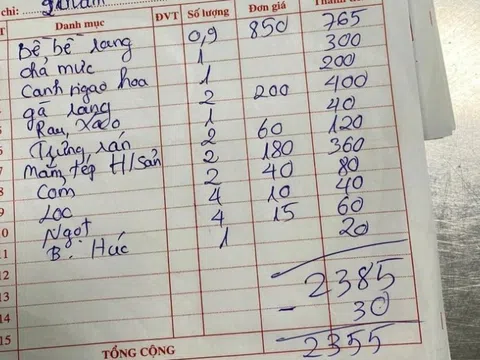 chỉ:
TT Danh mục ĐVT Số lượng Đơn giá Thành
Bề bề rang 0,9 850 765
chả mực 1 300
Canh ngao hoa 1 200
gà rang 2 200 400
Rau, xào 1 40
Trứng rán 2 60 120
Mắm tép H/sản 2 180 360
Cơm 2 40 80
Lọc 4 10 40
Ngọt 4 15 60
11 B. Húc 1 20
12
13 2385
14 - 30
15 2355
TỔNG CỘNG